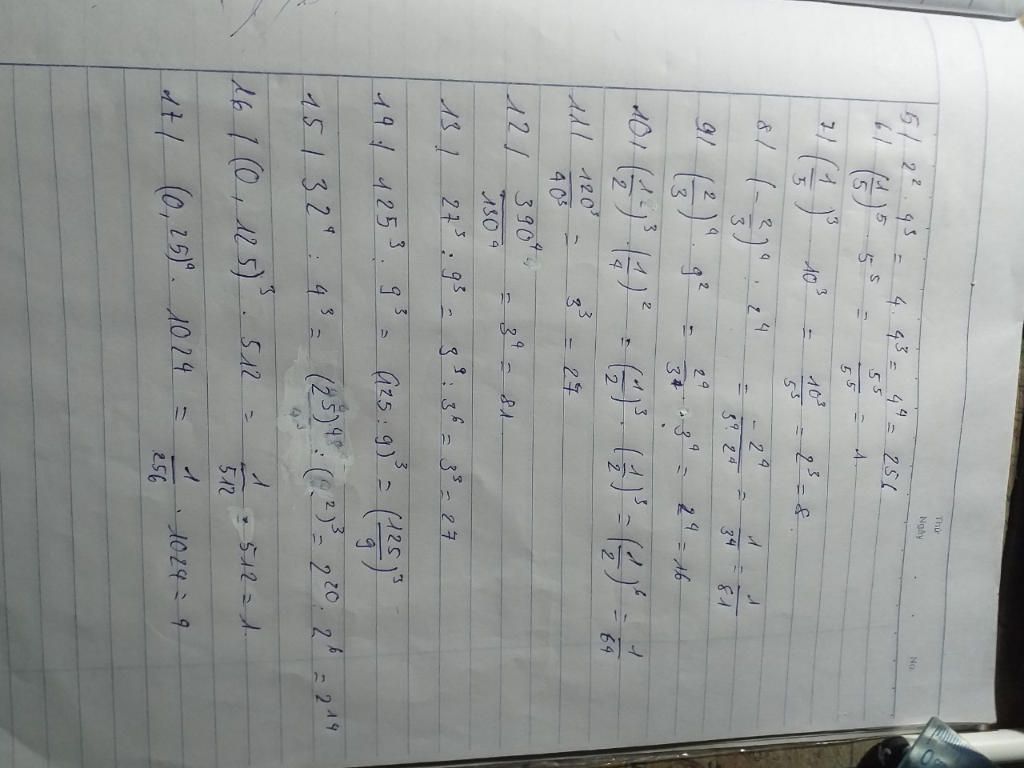 Thứ
Ngày . . No
5| 2². 4³ = 4. 4³ = 4⁴ = 256
6| (1/5)⁵. 5⁵ = 5⁵/5⁵ = 1
7| (1/5)³. 10³ = 10³/5³ = 2³ = 8
8| (-2/3)⁴ : 2⁴ = -2⁴/3⁴ 2⁴ = 1/3⁴ = 1/81
9| (2/3)⁴. 9² = 2⁴/3⁴ . 3⁴ = 2⁴ = 16
10| (1/2)³. (1/4)² = (1/2)³. (1/2)³ = (1/2)⁶ = 1/64
11| 120³/40³ = 3³ = 27
12| 390⁴/130⁴ = 3⁴ = 81
13| 27³ : 9³ = 3⁹ : 3⁶ = 3³ = 27
14| 125³ : 9³ = (125 : 9)³ = (125/9)³
15| 32⁴ : 4³ = (2⁵)⁴ : (2²)³ = 2²⁰ : 2⁶ = 2¹⁴
16| (0,125)³. 512 = 1/512 . 512 = 1
17| (0,25)⁴. 1024 = 1/256 . 1024 = 4